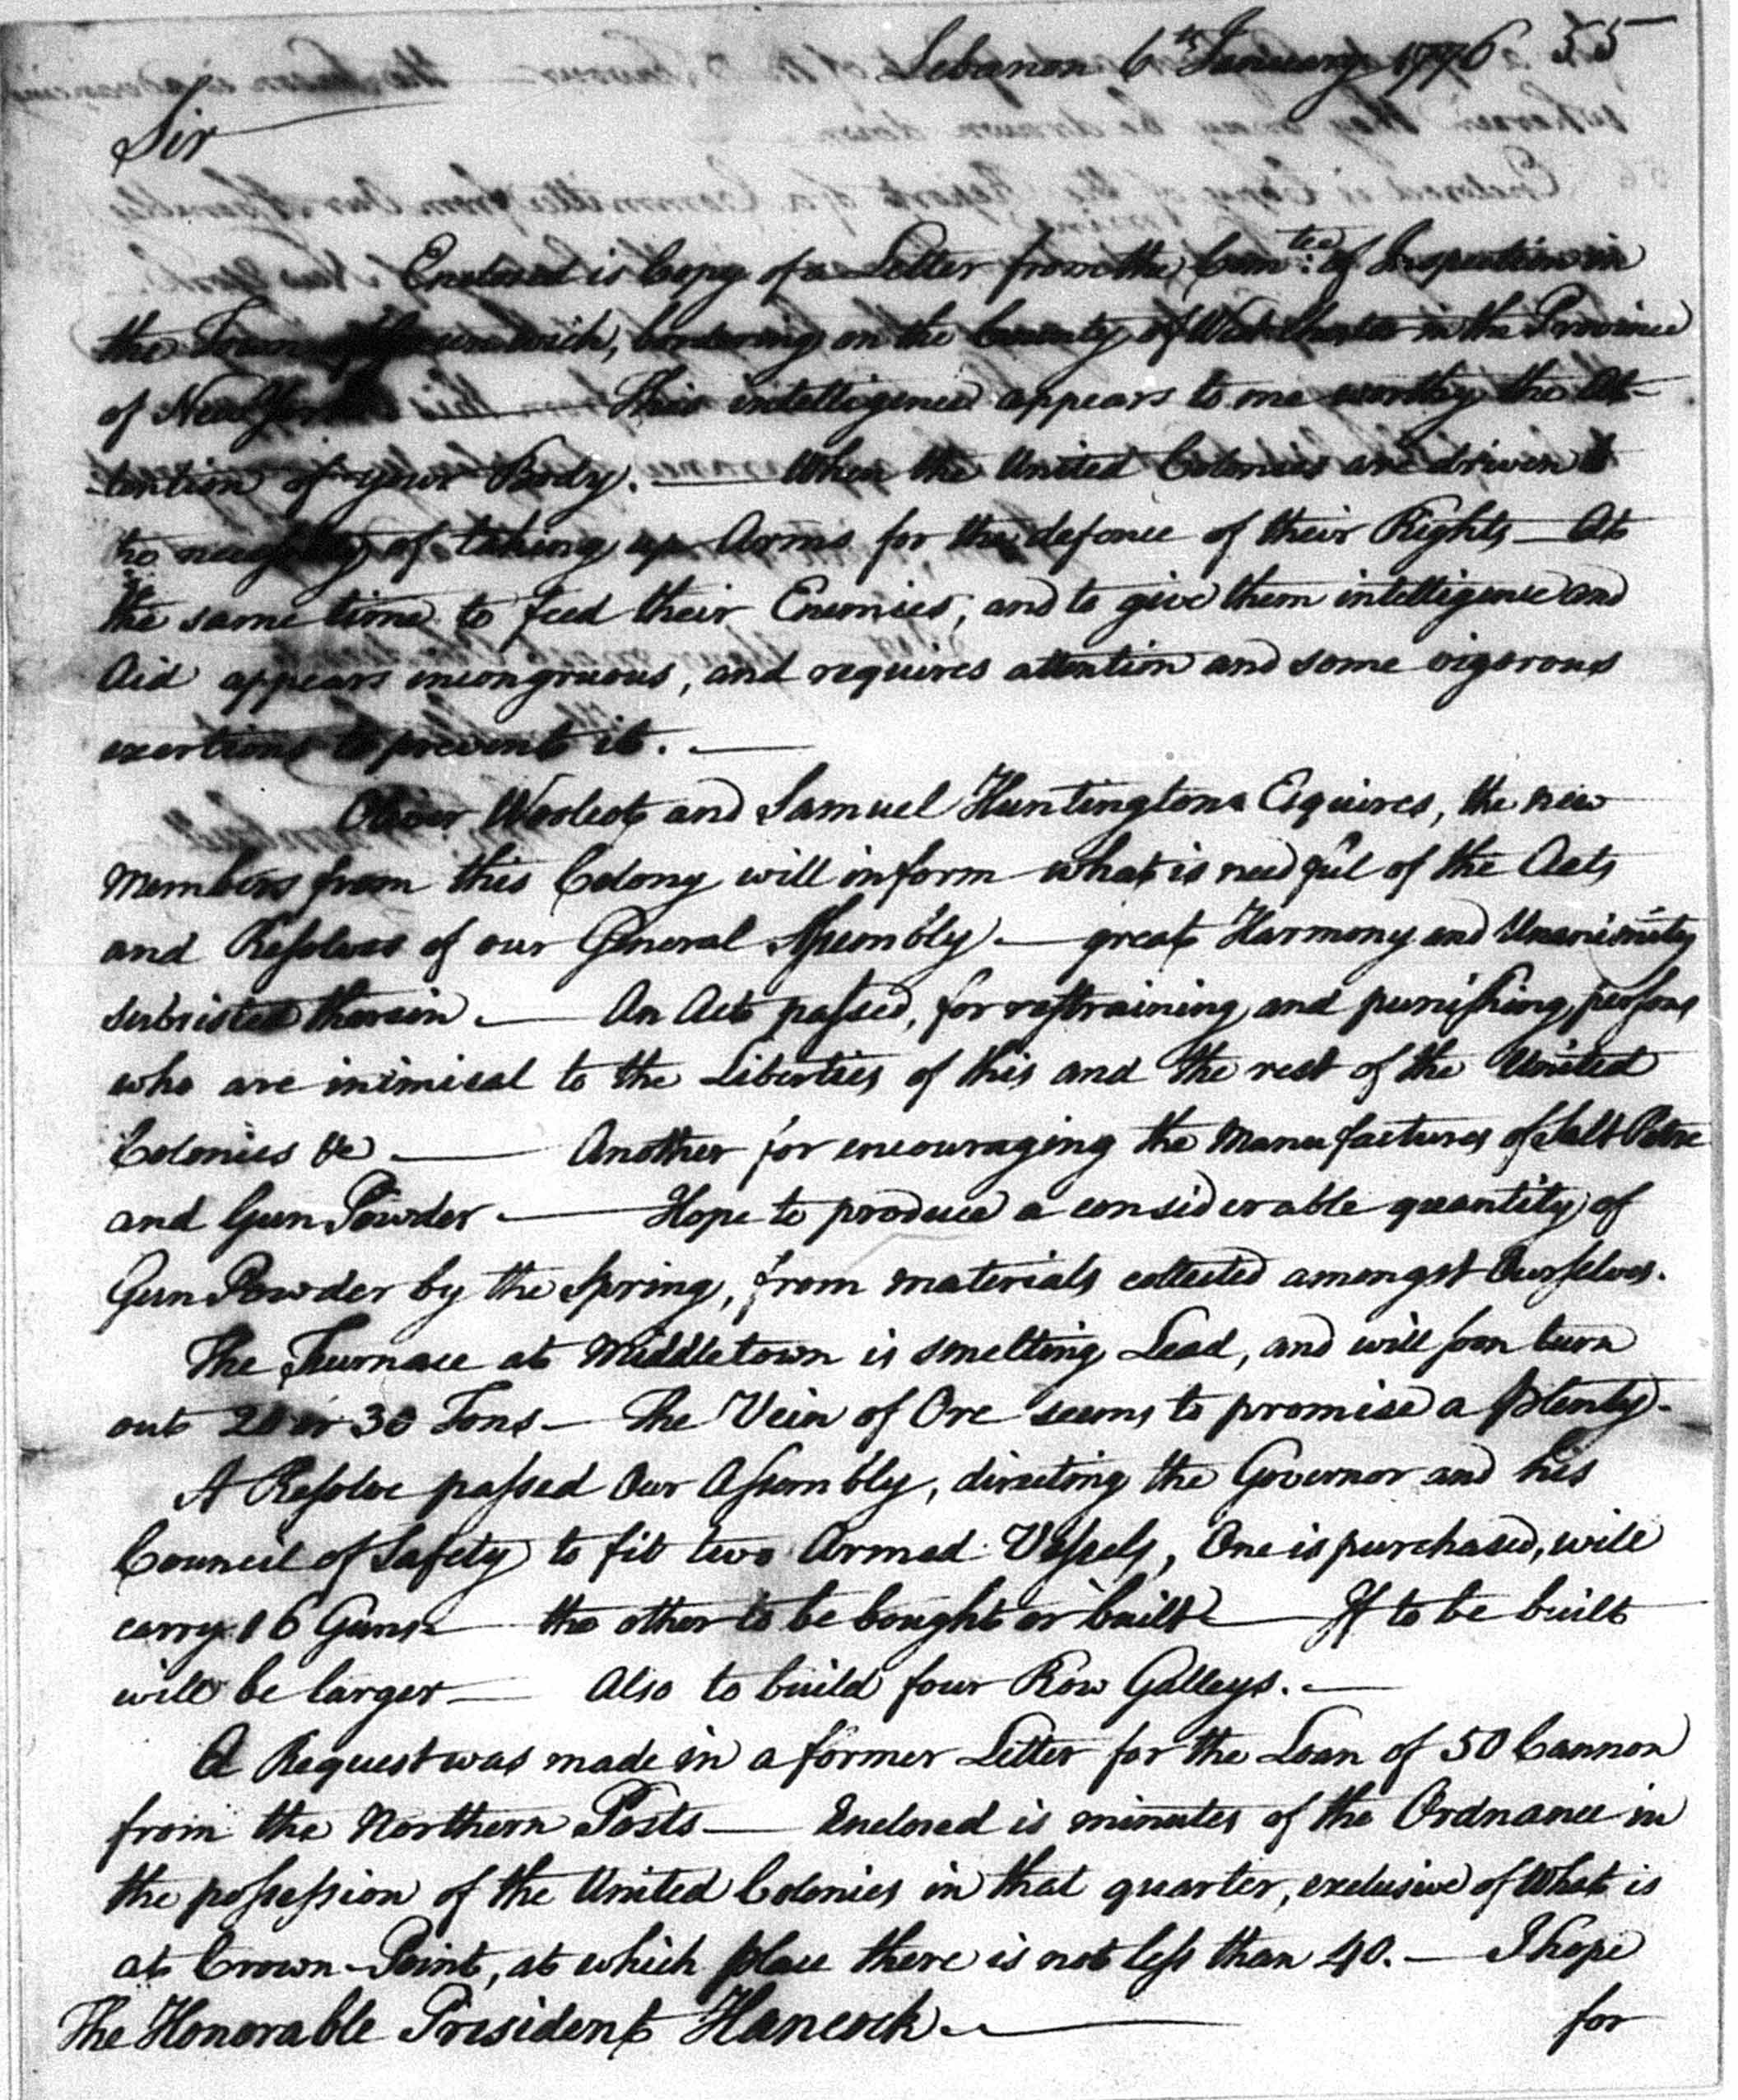 Lebanon 6th January 1776 55
Sir
Enclosed is Copy of a Letter from the Com:tee of Inspection in
the Town of Greenwich, bordering on the County of West Chester in the Province
of New York — This intelligence appears to me worthy the at-
tention of your Body. — When the United Colonies are driven to
the necessity of taking up Arms for the defence of their Rights — At
the same time to feed their Enemies, and to give them intelligence and
Aid appears incongruous, and requires attention and some vigorous
exertions to prevent it. —
Oliver Woolcot and Samuel Huntington Esquires, the new
Members from this Colony will inform what is needful of the Acts
and Resolves of our General Assembly — great Harmony and Unanimity
subsisted therein — An Act passed, for restraining and punishing persons
who are inimical to the Liberties of this and the rest of the United
Colonies &c — Another for encouraging the Manufactures of Salt Petre
and Gun Powder — Hope to produce a considerable quantity of
Gun Powder by the Spring, from materials collected amongst Ourselves.
The Furnace at Middletown is smelting Lead, and will soon turn
out 20 or 30 Tons — The Vein of Ore seems to promise a plenty —
A Resolve passed Our Assembly, directing the Governor and his
Council of Safety to fit two Armed Vessels, One is purchased, will
carry 16 Guns — the other to be bought or built — If to be built
will be larger — Also to build four Row Galleys. —
A Request was made in a former Letter for the Loan of 50 Cannon
from the Northern Posts — Enclosed is minutes of the Ordnance in
the possession of the United Colonies in that quarter, exclusive of What is
at Crown-Point, at which place there is not less than 40. — I hope
The Honorable President Hancock — for